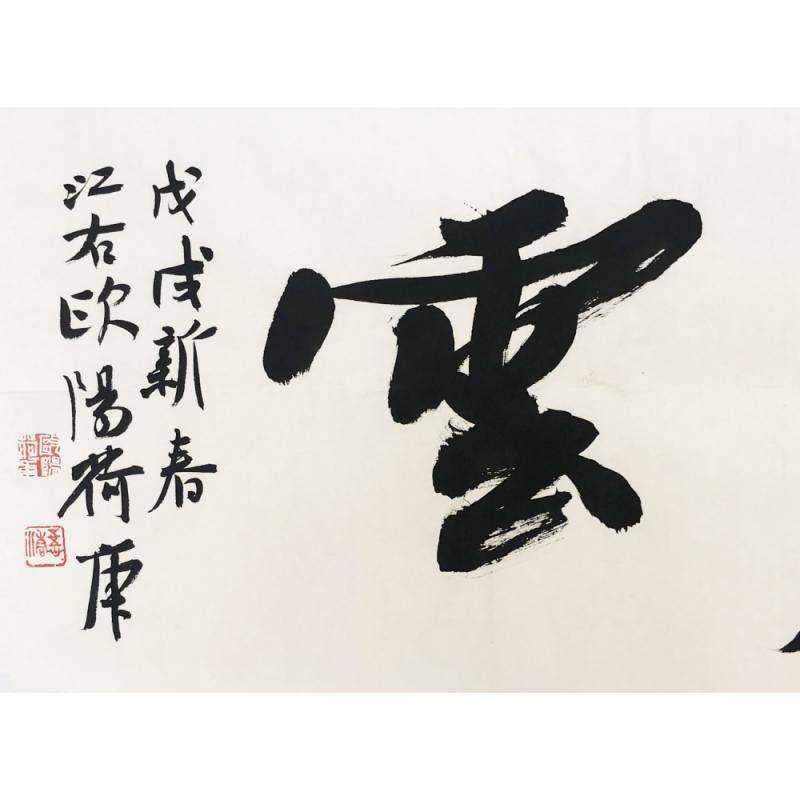 雲
戊戌新春
江右欧陽荷庚